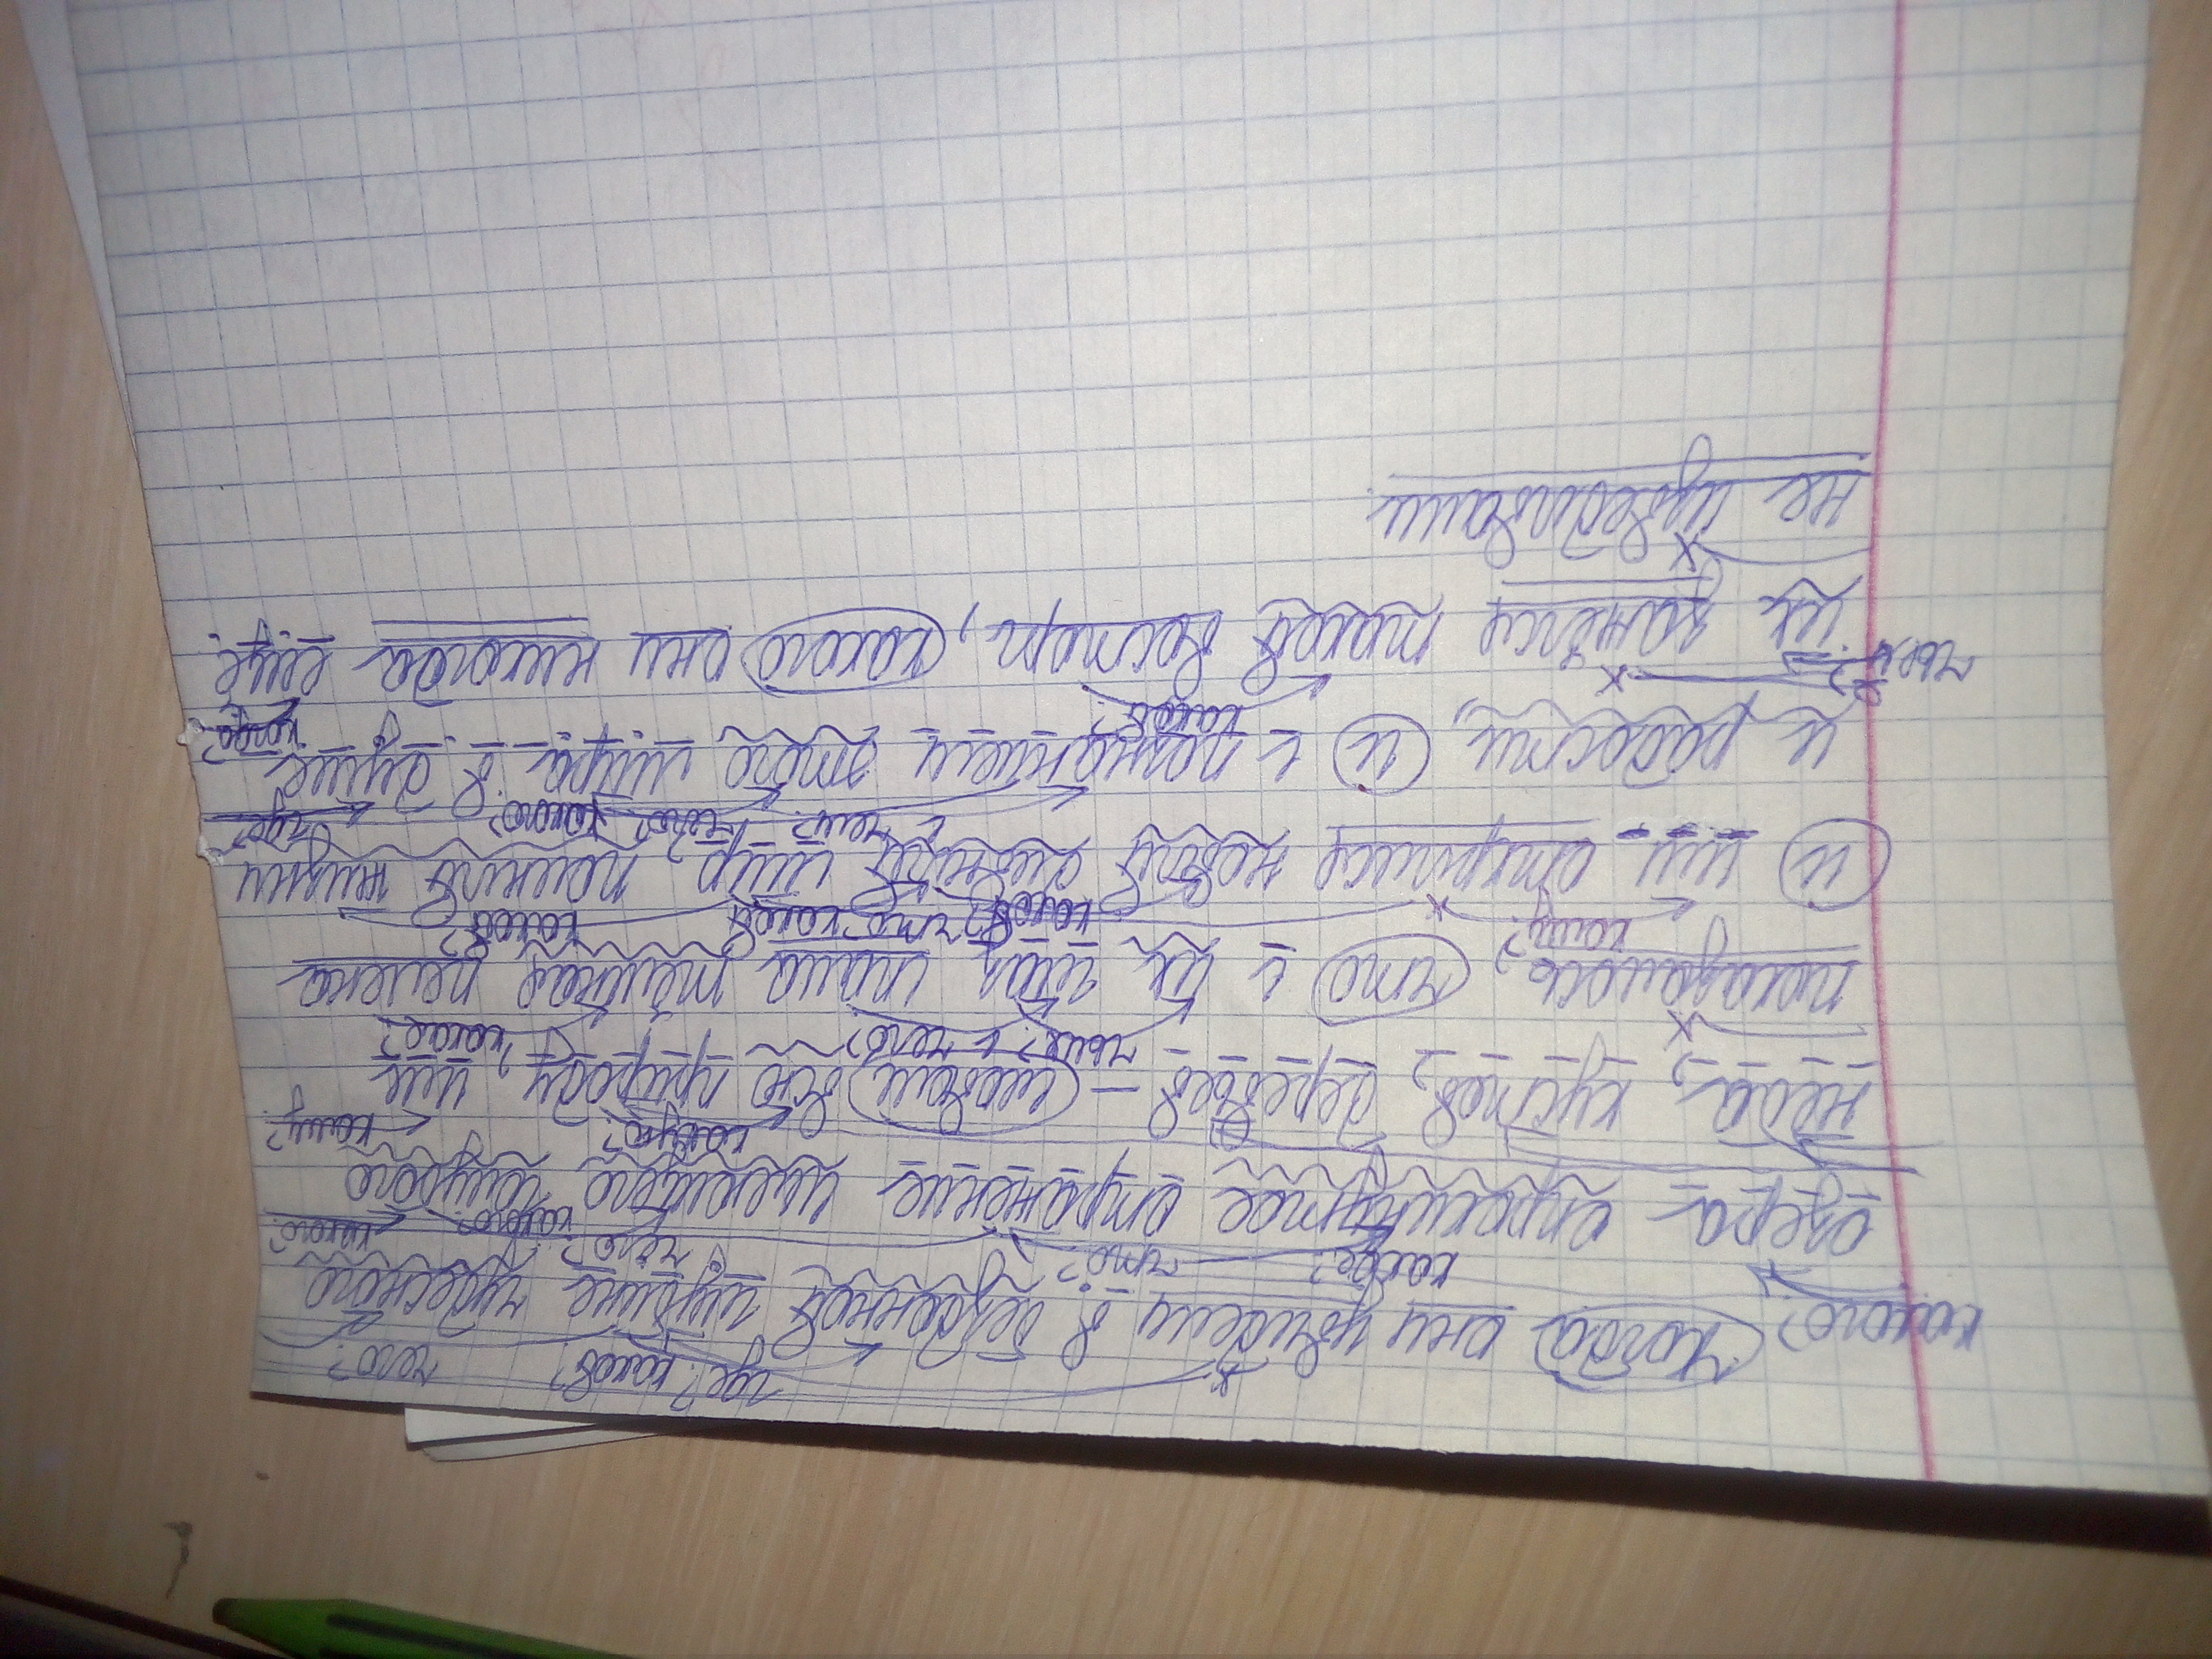 где? какой? чего?
какого? Когда они увидели в бездонной глубине чудесного
какое? что? чего? какого? какого?
озера опрокинутое отражение сияющего голубого
какую? кому?
неба, кустов, деревьев — словом, всю природу, им
чьих? с чего? какая?
показалось, что с их глаз спала тёмная пелена
кому? какой? что какой какой?
и им открылся новый дивный мир, полный жизни
с чем? чего? какого? где?
и радости, и с познанием этого мира в душе
какой? когда?
чьей? их зажёгся такой восторг, какого они никогда ещё
не изведывали.